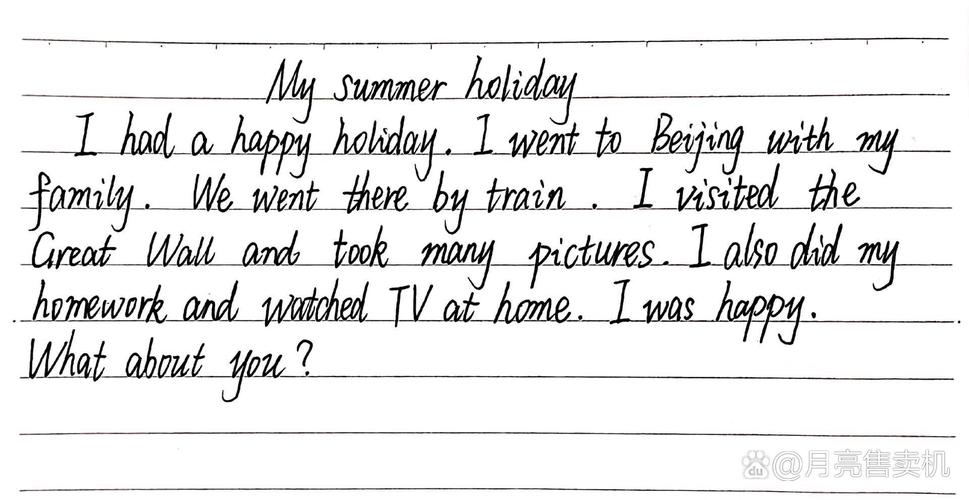 My summer holiday
I had a happy holiday. I went to Beijing with my
family. We went there by train. I visited the
Great Wall and took many pictures. I also did my
homework and watched TV at home. I was happy.
What about you?
du @月亮售卖机